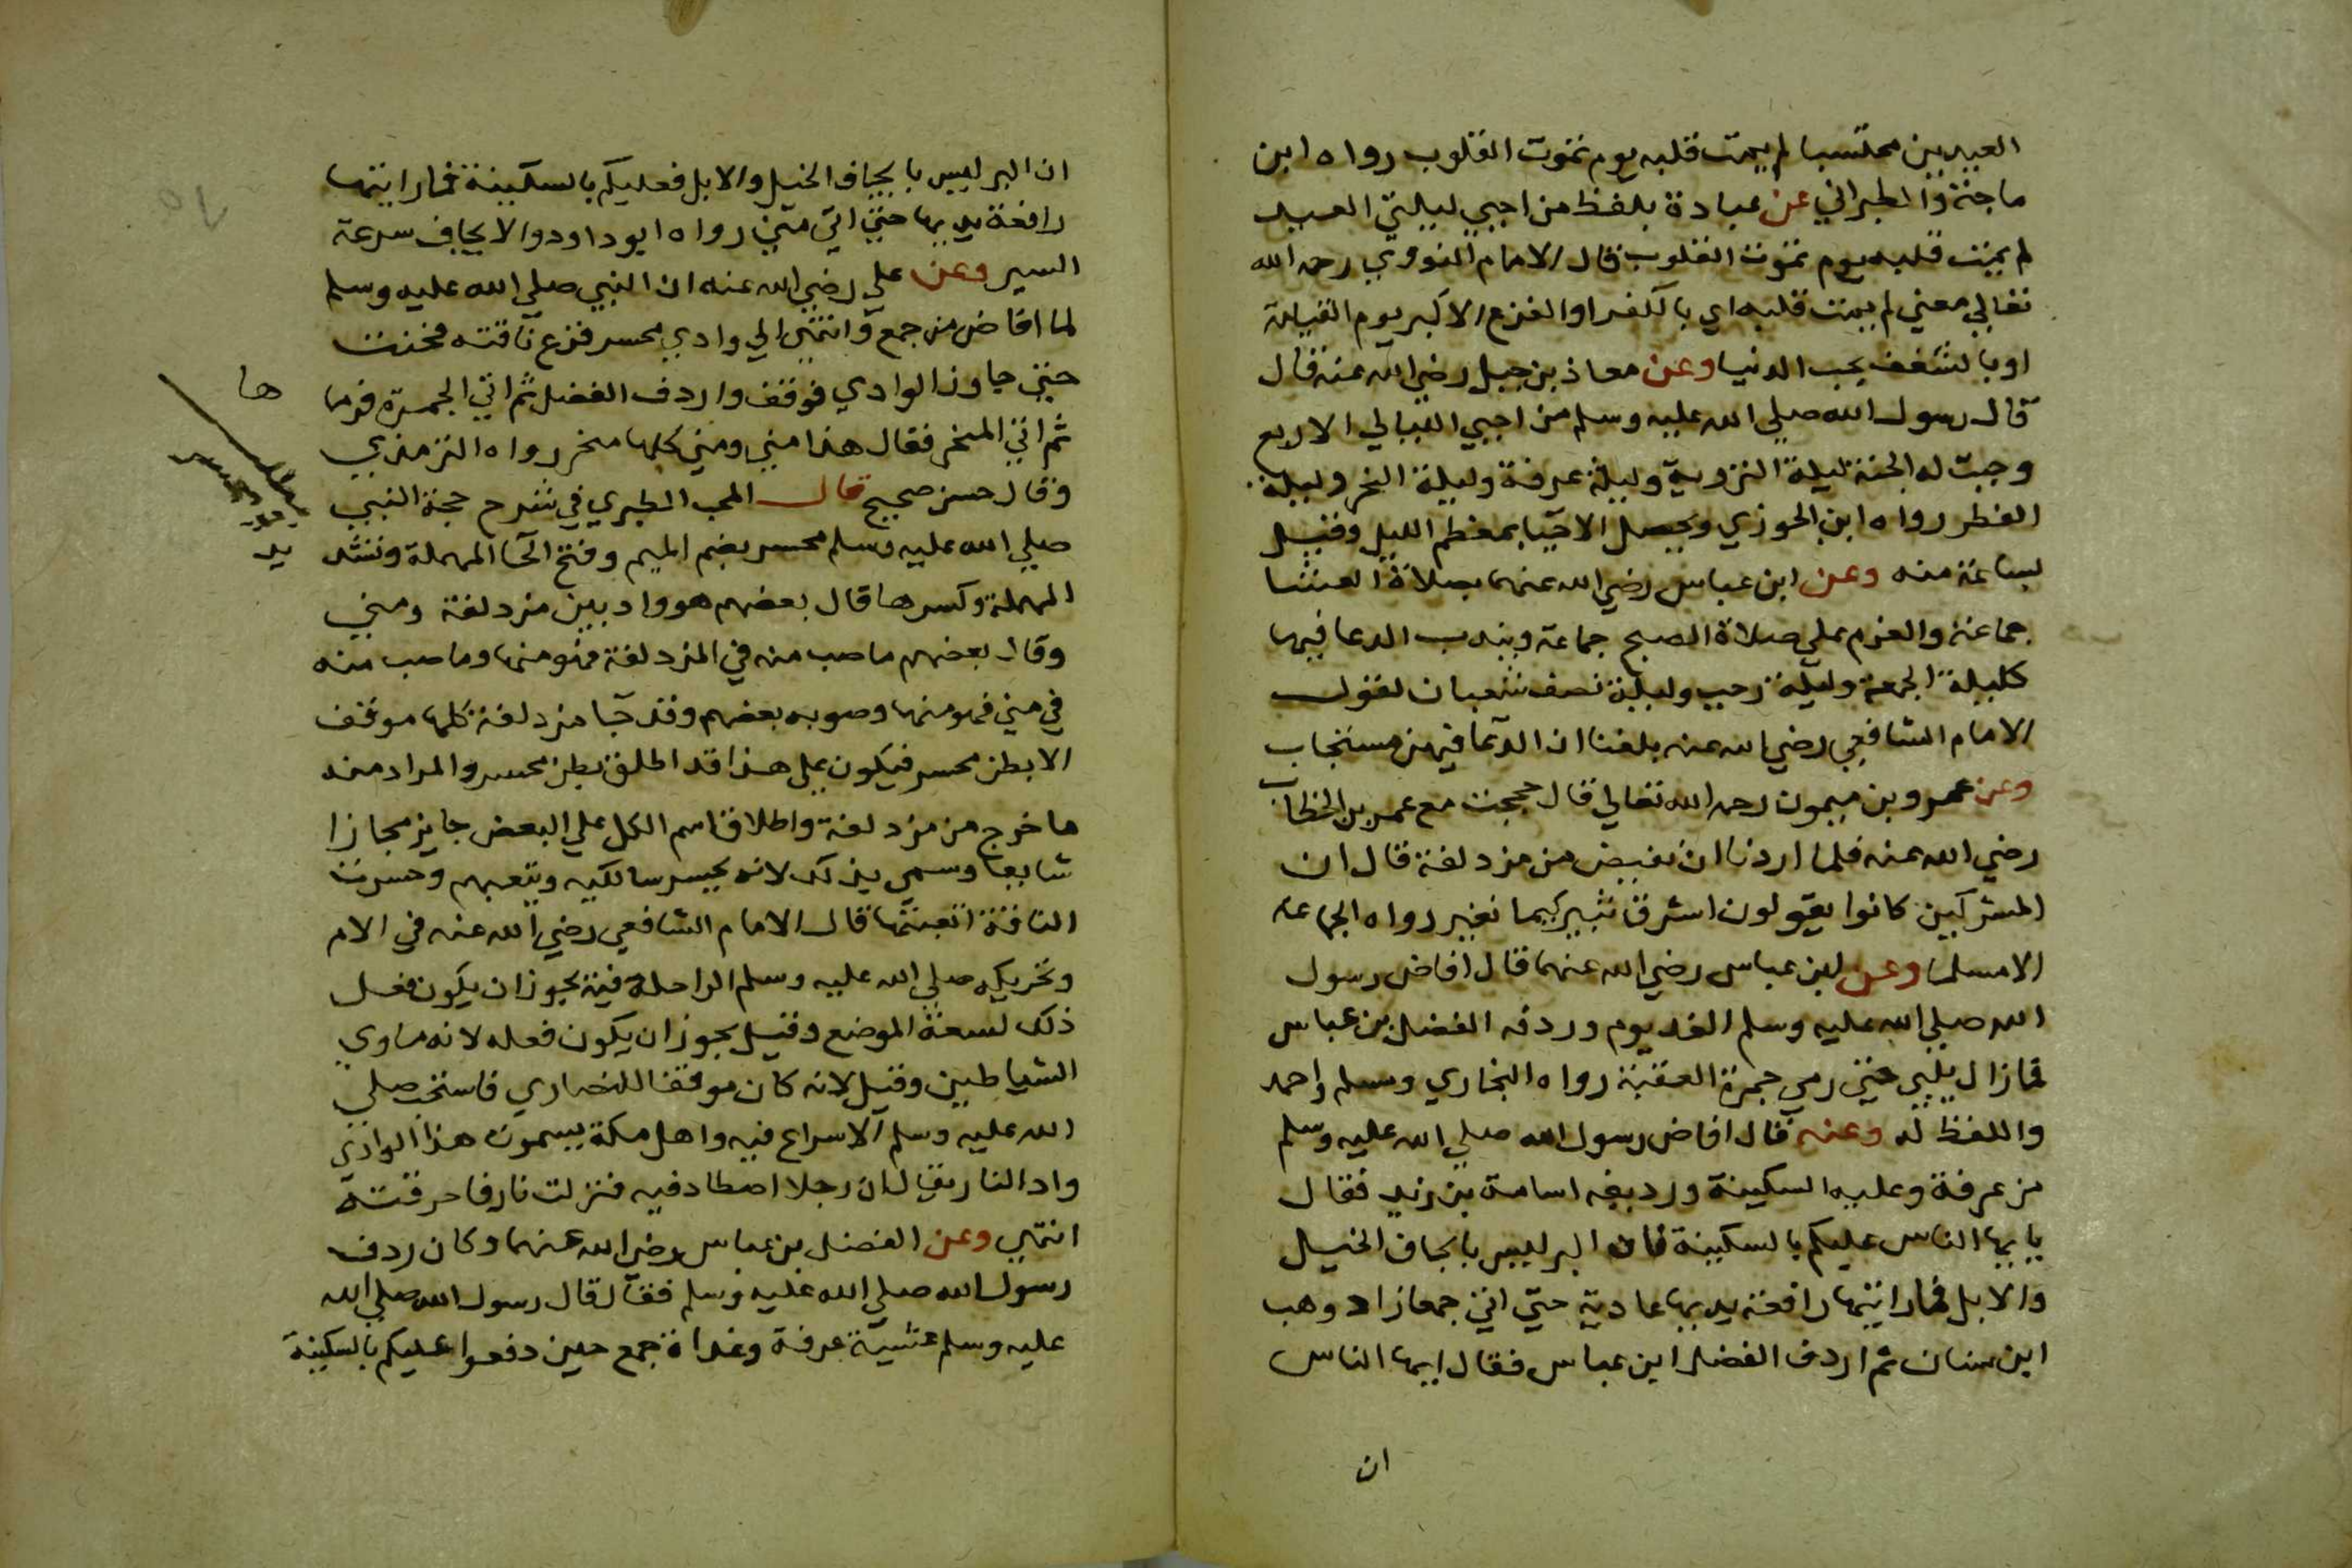 العيدين محتسبا لم يمت قلبه يوم تموت القلوب رواه ابن
ماجة والطبراني عن عبادة بلفظ من احيي ليلتي العيد
لم يمت قلبه يوم تموت القلوب قال الامام النووي رحمه الله
تعالي معني لم يمت قلبه اي بالكفر او الفزع الاكبر يوم القيامة
او بالشغف بحب الدنيا وعن معاذ بن جبل رضي الله عنه قال
قال رسول الله صلي الله عليه وسلم من احيي الليالي الاربع
وجبت له الجنة ليلة التروية وليلة عرفة وليلة النحر وليلة
الفطر رواه ابن الجوزي ويحصل الاحيا بمعظم الليل وقيل
بساعة منه وعن ابن عباس رضي الله عنهما بصلاة العشا
جماعة والعزم علي صلاة الصبح جماعة ويندب الدعا فيها
كليلة الجمعة وليلة رجب وليلة نصف شعبان لقول
الامام الشافعي رضي الله عنه بلغنا ان الدعا فيهن مستجاب
وعن عمرو بن ميمون رحمه الله تعالي قال حججت مع عمر بن الخطاب
رضي الله عنه فلما اردنا ان نفيض من مزدلفة قال ان
المشركين كانوا يقولون اشرق ثبير كيما نغير رواه الجماعة
الا مسلما وعن ابن عباس رضي الله عنهما قال افاض رسول
الله صلي الله عليه وسلم الغد يوم وردفه الفضل بن عباس
فما زال يلبي حتي رمي جمرة العقبة رواه البخاري ومسلم واحمد
واللفظ له وعنه قال افاض رسول الله صلي الله عليه وسلم
من عرفة وعليه السكينة ورديفه اسامة بن زيد فقال
يا ايها الناس عليكم بالسكينة فان البر ليس بايجاف الخيل
والابل فما رايتها رافعة يديها عادية حتي اتي جمعا زاد وهب
ابن سنان ثم اردف الفضل ابن عباس فقال ايها الناس
ان
ان البر ليس بايجاف الخيل والابل فعليكم بالسكينة فما رايتها
رافعة يديها حتي اتي مني رواه ابو داود والايجاف سرعة
السير وعن علي رضي الله عنه ان النبي صلي الله عليه وسلم
لما افاض من جمع وانتهي الي وادي محسر فزع ناقته فخبت
حتي جاوز الوادي فوقف واردف الفضل ثم اتي الجمرة فرما
ها
ثم اتي المنحر فقال هذا مني ومني كلها منحر رواه الترمذي
وقال حسن صحيح قال المحب الطبري في شرح حجة النبي
صلي الله عليه وسلم محسر بضم الميم وفتح الحا المهملة وتشد
يد
المهملة وكسرها قال بعضهم هو واد بين مزدلفة ومني
وقال بعضهم ما صب منه في المزدلفة فهو منها وما صب منه
في مني فهو منها وصوبه بعضهم وقد جا مزدلفة كلها موقف
الا بطن محسر فيكون علي هذا قد اطلق بطن محسر والمراد منه
ما خرج من مزدلفة واطلاق اسم الكل علي البعض جايز مجازا
شايعا وسمي بذلك لانه يحسر سالكيه ويتعبهم وحسرت
الناقة اتعبتها قال الامام الشافعي رضي الله عنه في الام
وتحريكه صلي الله عليه وسلم الراحلة فيه يجوز ان يكون فعل
ذلك لسعة الموضع وقيل يجوز ان يكون فعله لانه ماوي
الشياطين وقيل لانه كان موقفا للنصاري فاستحب صلي
الله عليه وسلم الاسراع فيه واهل مكة يسمون هذا الوادي
واد النار يقال ان رجلا اصطاد فيه فنزلت نار فاحرقته
انتهي وعن الفضل بن عباس رضي الله عنهما وكان ردف
رسول الله صلي الله عليه وسلم فقال قال رسول الله صلي الله
عليه وسلم عشية عرفة وغداة جمع حين دفعوا عليكم بالسكينة